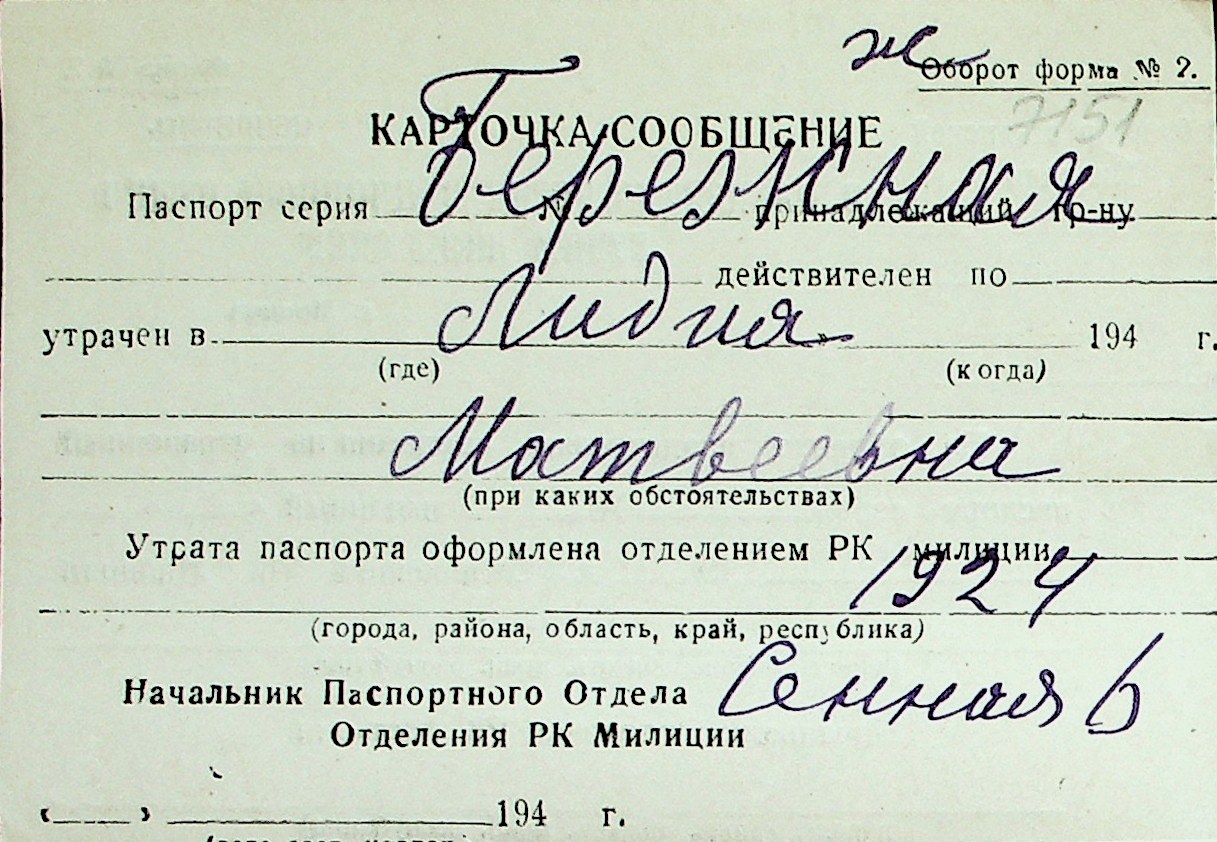 ж
Оборот форма № 2.
7151
КАРТОЧКА/СООБЩЕНИЕ
Бережная
Паспорт серия № принадлежащий гр-ну
действителен по
Лидия
утрачен в » 194 г.
(где) (когда)
Матвеевна
(при каких обстоятельствах)
Утрата паспорта оформлена отделением РК милиции
1924
(города, района, область, край, республика)
Сенная 6
Начальник Паспортного Отдела
Отделения РК Милиции
« » 194 г.